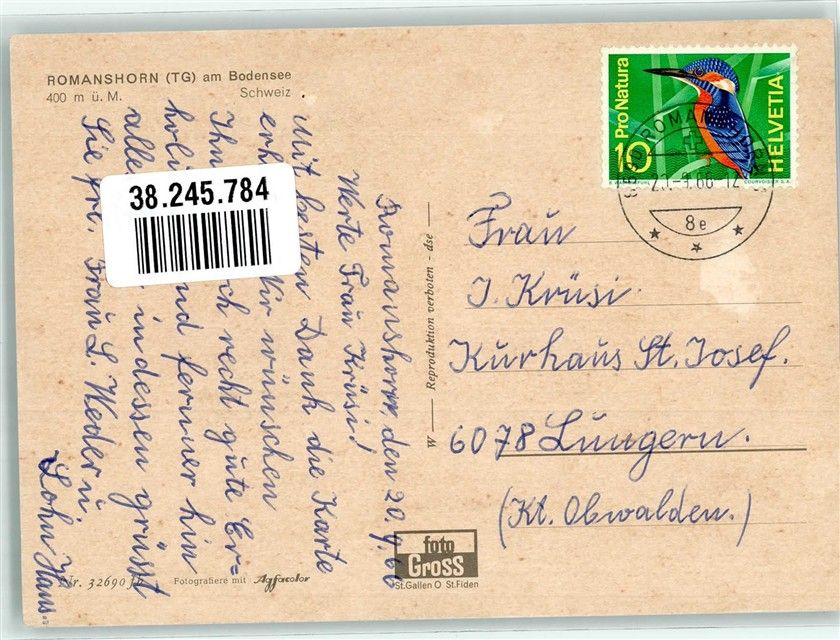 ROMANSHORN (TG) am Bodensee
400 m ü. M. Schweiz
38.245.784
Romanshorn, den 20. 9. 66
Werte Frau Krüsi!
Mit besten Dank die Karte
erh Wir wünschen
Ihn ch recht gute Er-
holu nd ferner hin
alles in dessen grüsst
Sie frl. Frau L. Weder u.
Sohn Hans.
Nr. 32690 Fotografiere mit Agfacolor
W — Reproduktion verboten - dse —
foto
GROSS
St.Gallen O St.Fiden
Pro Natura
10
HELVETIA
COURVOISIER S.A.
ROMANSHORN
20.-9.66 12
8e
Frau
J. Krüsi.
Kurhaus St. Josef.
6078 Lungern.
(Kt. Obwalden.)